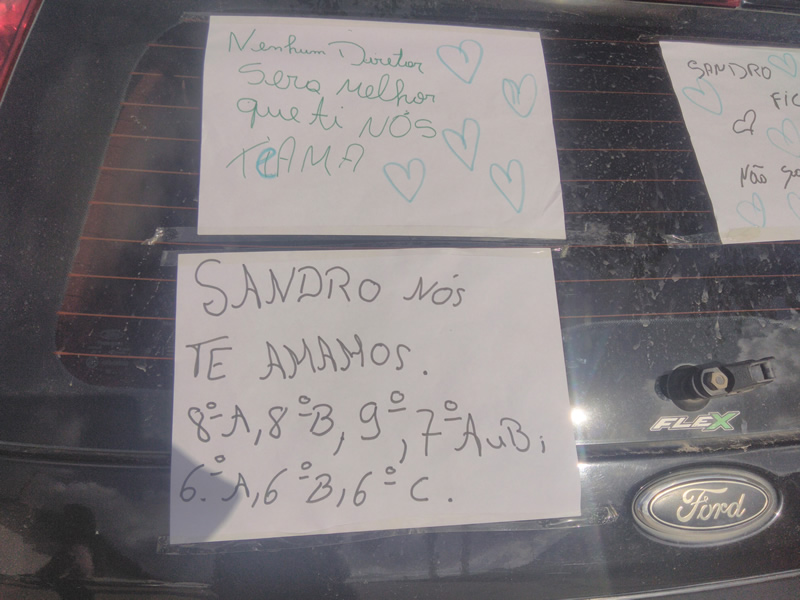 Nenhum Diretor
Sera melhor
que ti NÓS
TEAMA
SANDRO
FIC
Não
SANDRO NÓS
TE AMAMOS.
8º A, 8º B, 9º, 7º A u B;
6.º A, 6º B, 6º C.
FLEX
Ford